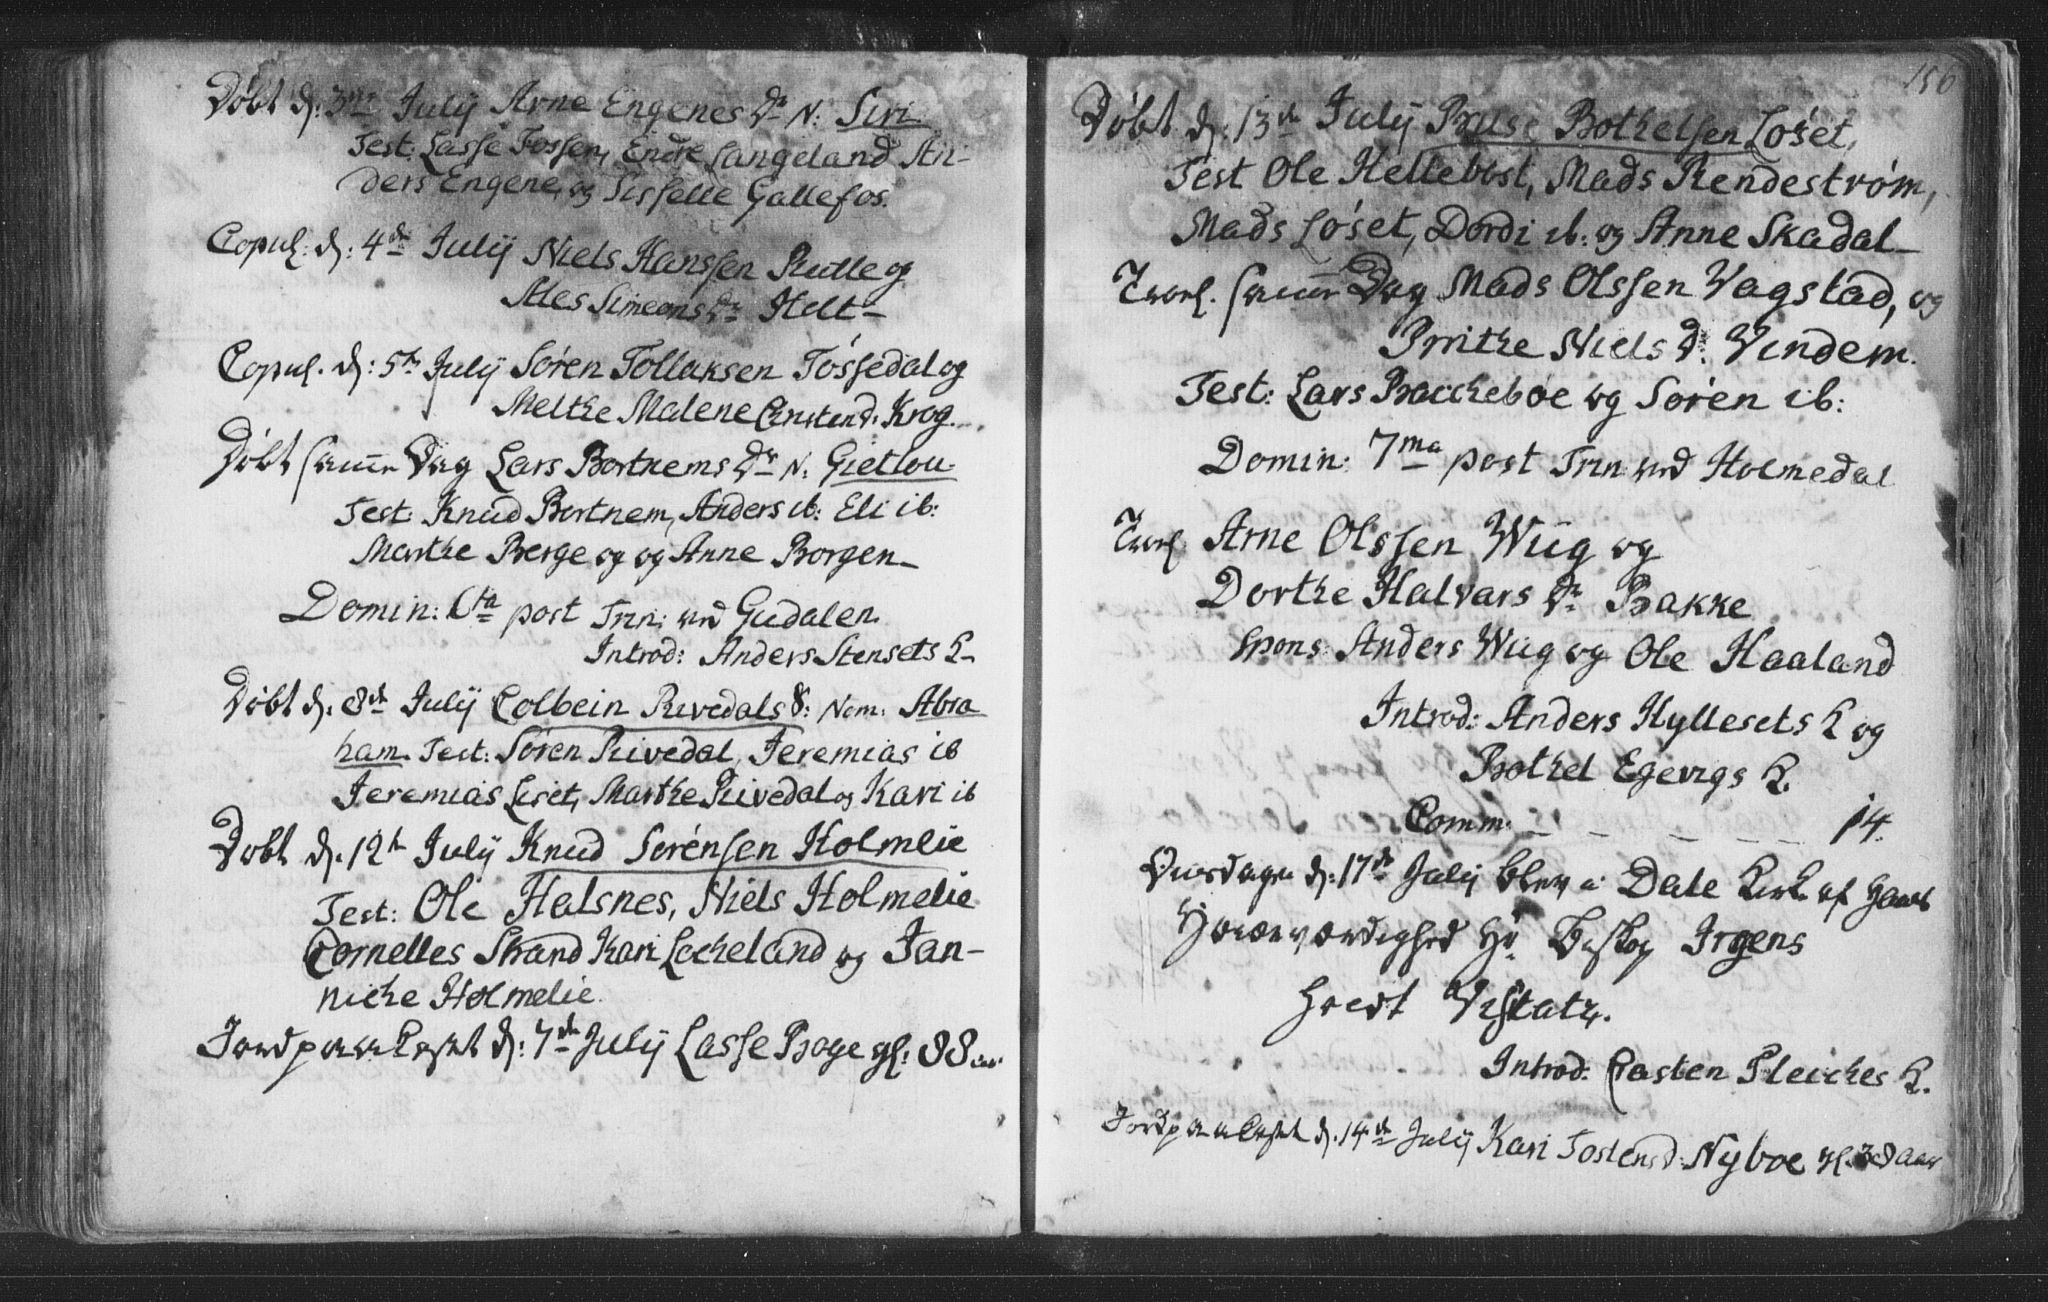 Døbt d: 3die Julÿ Arne Engenes Dr N: Siri
Test: Lasse Fossen, Endre Langeland An-
ders Engene, og Sisselle Gallefos.
Copul: d: 4de Julÿ Niels Hanssen Rutle og
Ales Simeons Dr Helt
Copul. d: 5te Julÿ Søren Tollaksen Tossedal og
Melthe Malene Christend: Krog.
Døbt samme Dag Lars Bortnems Dr N: Gietlou
Test: Knud Bortnem, Anders ib: Eli ib:
Marthe Berge og og Anne Borgen
Domin: 6ta post Trin: ved Gudalen
Introd: Anders Stensets K
Døbt d. 8de Julÿ Colbein Rivedals S: Nom: Abra
ham Test: Søren Rivedal, Jeremias ib
Jeremias Leset, Marthe Rivedal og Kari ib
Døbt d. 12te Julÿ Knud Sørensen Holmelie
Test: Ole Halsnes, Niels Holmelie
Cornelles Strand Kari Lecheland og Jan-
niche Holmelie
Jordpaakastet d: 7de Julÿ Lasse Boge gl: 88 aar
156
Døbt d: 13de Julÿ Bruse Bothelsen Løset,
Test Ole Hellebost, Mads Rendestrøm,
Mads Løset, Dordi ib: og Anne Skadal
Trorl. samme Dag Mads Olssen Vagstad, og
Brithe Niels D: Vindem.
Test: Lars Baccheboe og Søren ib:
Domin: 7ma post Trin ved Holmedal
Trorl. Arne Olssen Wiig og
Dorthe Halvars Dr Bakke
Spons: Anders Wiig og Ole Haaland
Introd: Anders Hyllesets K og
Bothel Egevigs K.
Comm: 14.
d. 17de Julÿ blev i Dale Kirke af Hans
Høiærværdighed Hr Biskop Irgens
hOldt Visitatz.
Introd: Casten Pleiches K.
Jordpaakastet d. 14de Julÿ Kari Tostensd: Nyboe gl. 38 aar